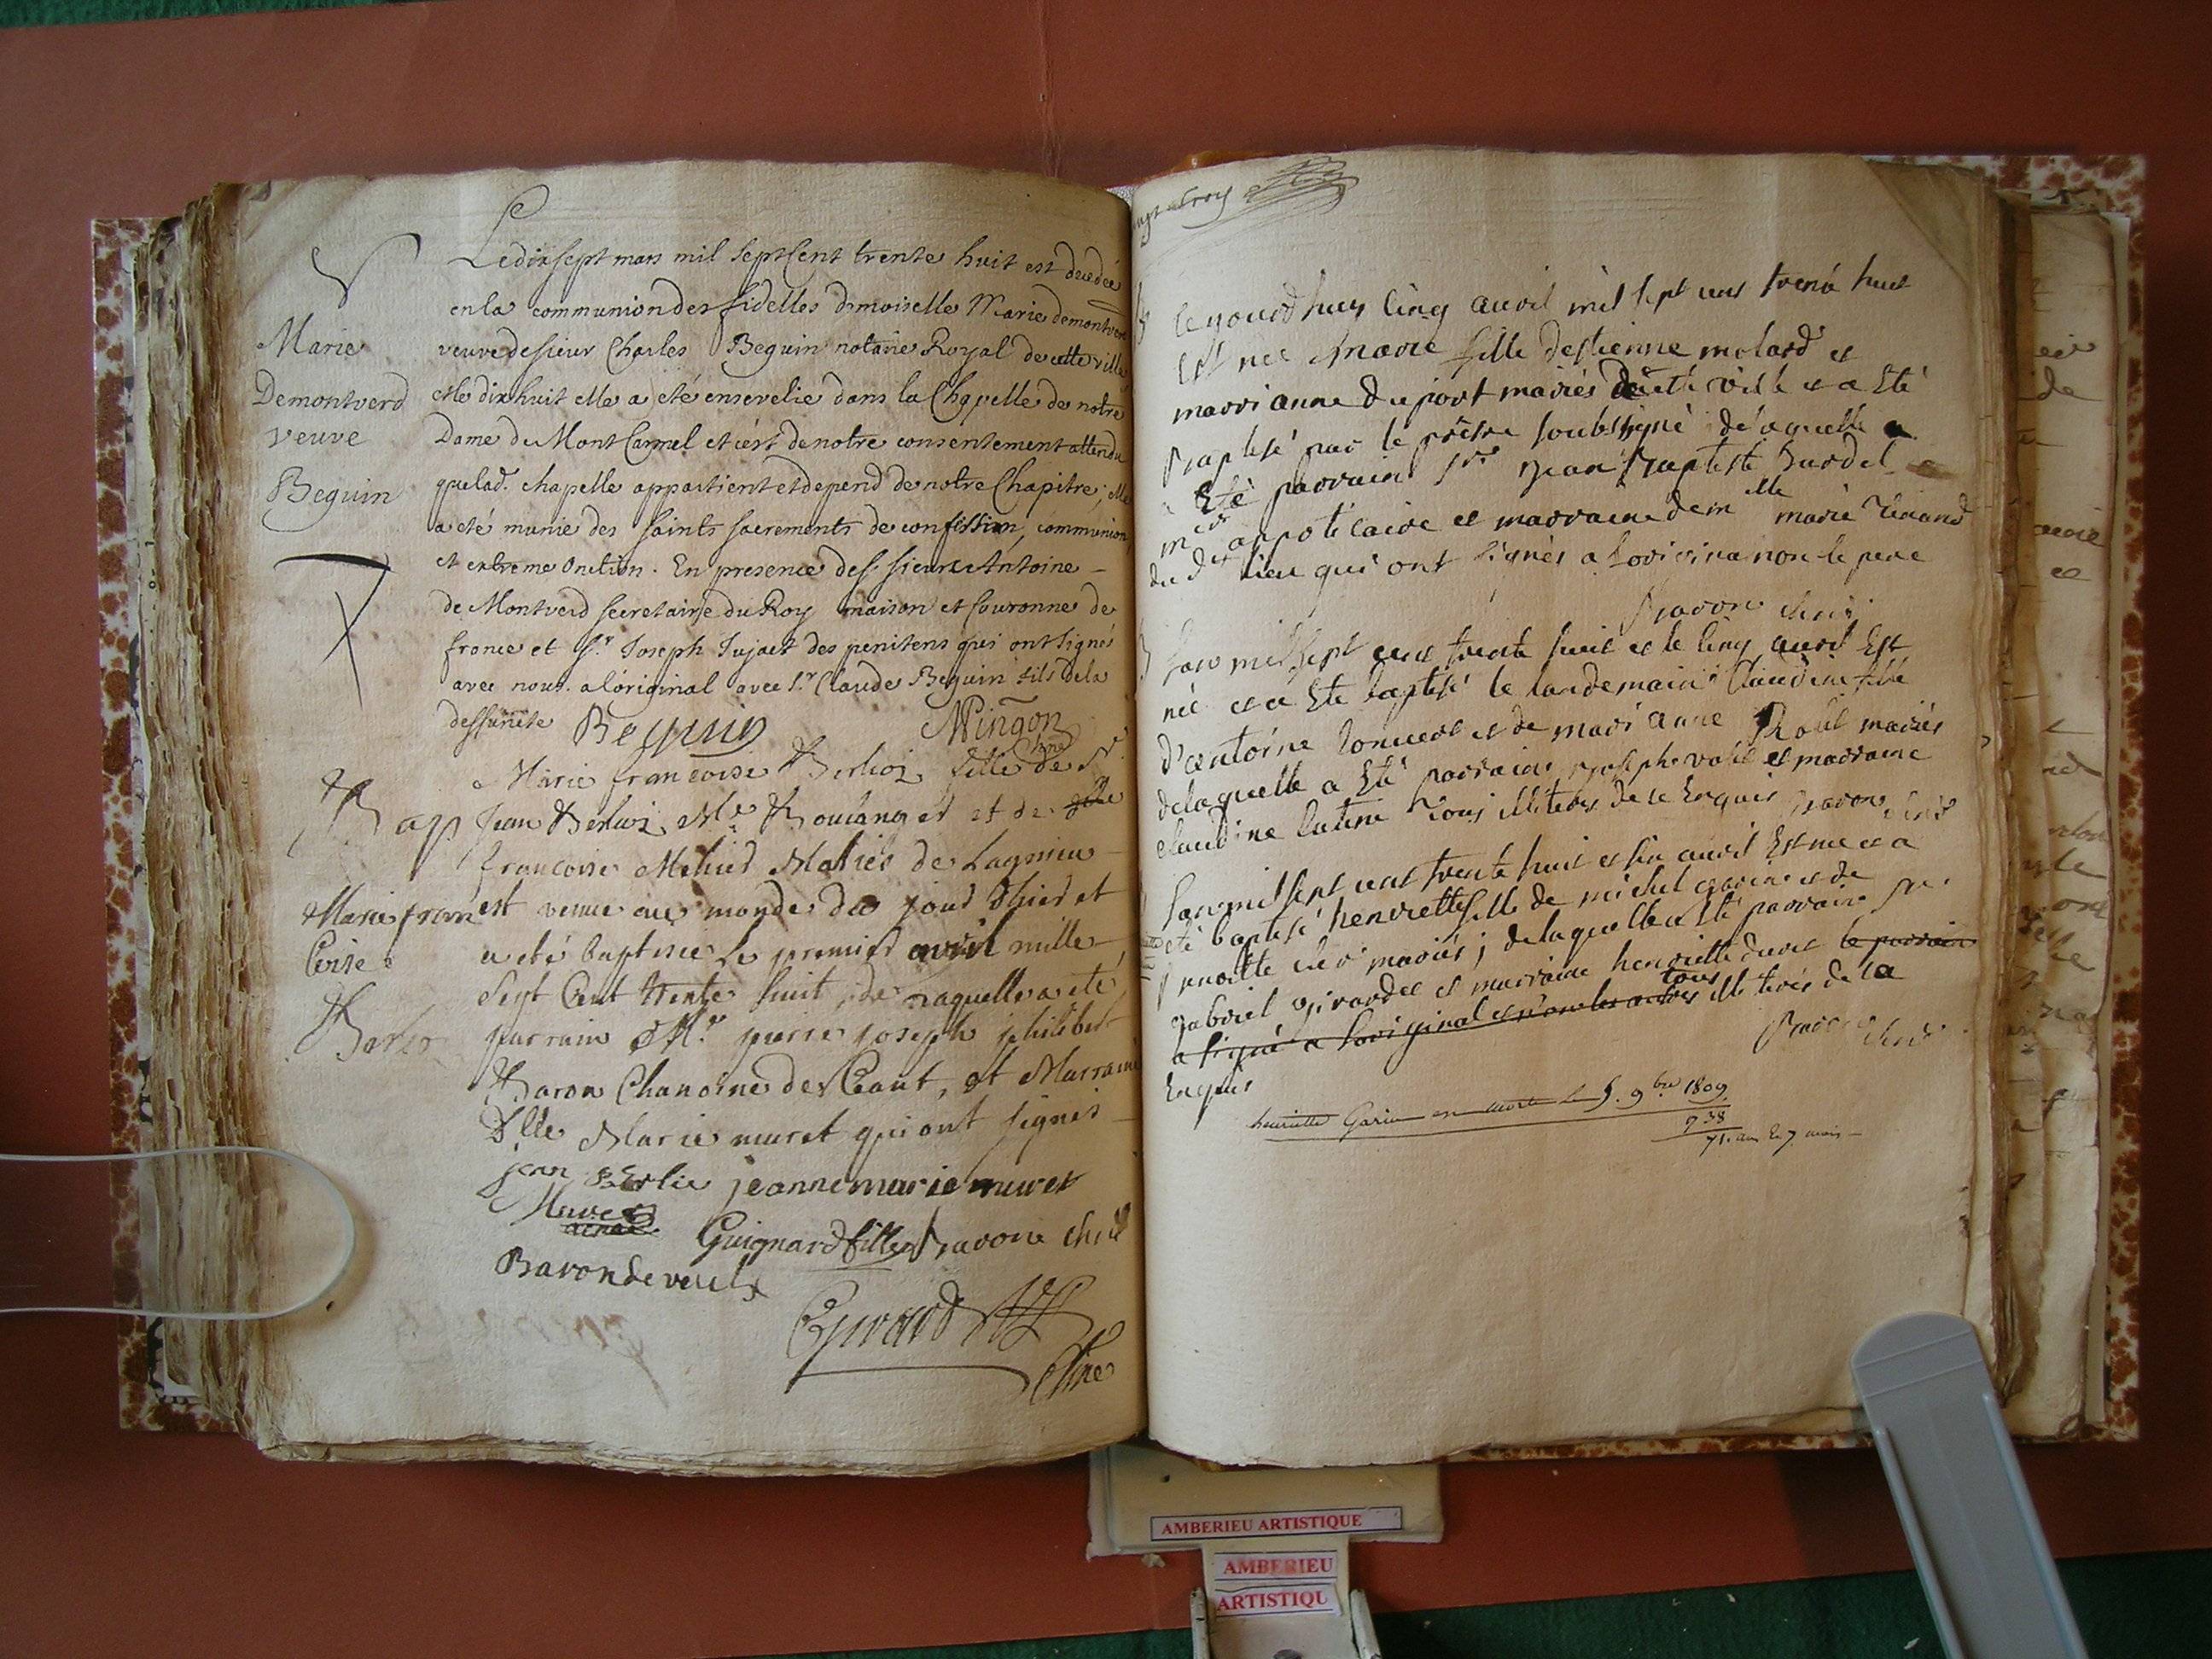 Le dix sept mars mil sept Cent trente huit est decedée
en la communion des fidelles demoiselle Marie demontverd
veuve de sieur Charles Beguin notaire Royal de cette ville
et le dix huit elle a eté ensevelie dans la Chapelle de notre
Dame du Mont Carmel et c'est de notre consentement attendu
que lad. chapelle appartient et depend de notre Chapitre, elle
a eté munie des saints sacrements de confession, communion
et extreme Onction. En presence des sieurs Antoine
de Montverd secretaire du Roy maison et Couronne de
france et Sr. Joseph Jujat des penitens qui ont signés
avec nous. a l'original avec Sr. Claude Beguin fils de la
deffuncte Beguin
Marie
Demontverd
veuve
Beguin
Marie francoise Berlioz fille de Sr.
Jean Berlioz Me. Boulanger et de
francoise Mariés de Lagnieu
est venue au monde du jour d'hier et
a eté baptisée le premier avril mille
sept Cent trente huit, de laquelle a eté
parrain Mr. pierre joseph philibert
Baron Chanoine de Ceant, et Marraine
Dlle Marie muret qui ont signés
jean Berlie jeanne marie muret
Guignard fille Baron
Baron de
Girard
Bap
Marie fran
Coise
Berlio
Ce jourd huy cinq avril mil sept cens trente huit
est née marie fille d'estienne molard et
marri anne du port mariés de cette ville et a Eté
baptisé par le prêtre soubsigné de laquelle a
Eté parrain Sr. Jean Baptiste
me appoticaire et marraine demlle marie
du dt lieu qui ont signés a l'original non le pere
Baron
l'an mil sept cent trente huit et le cinq avril Est
née et a Eté baptisé le landemain Claudine fille
d'antoine et de mari anne mariés
de laquelle a Eté parrain joseph et marraine
claudine tous illiterés de ce Enquis Baron
l'an mil sept cent trente huit et six avril Est née et a
eté baptisé henriette fille de michel garin et de
mariés, de laquelle a Eté parrain Sr.
gabriel girardet et marraine henriette le parrain
a signé a l'original et non les autres tous illiterés de ca
Enquis
Baron
henriette Garin est morte le 5. 9bre 1809
738
71. ans & 7. mois
AMBERIEU ARTISTIQUE
AMBERIEU
ARTISTIQU